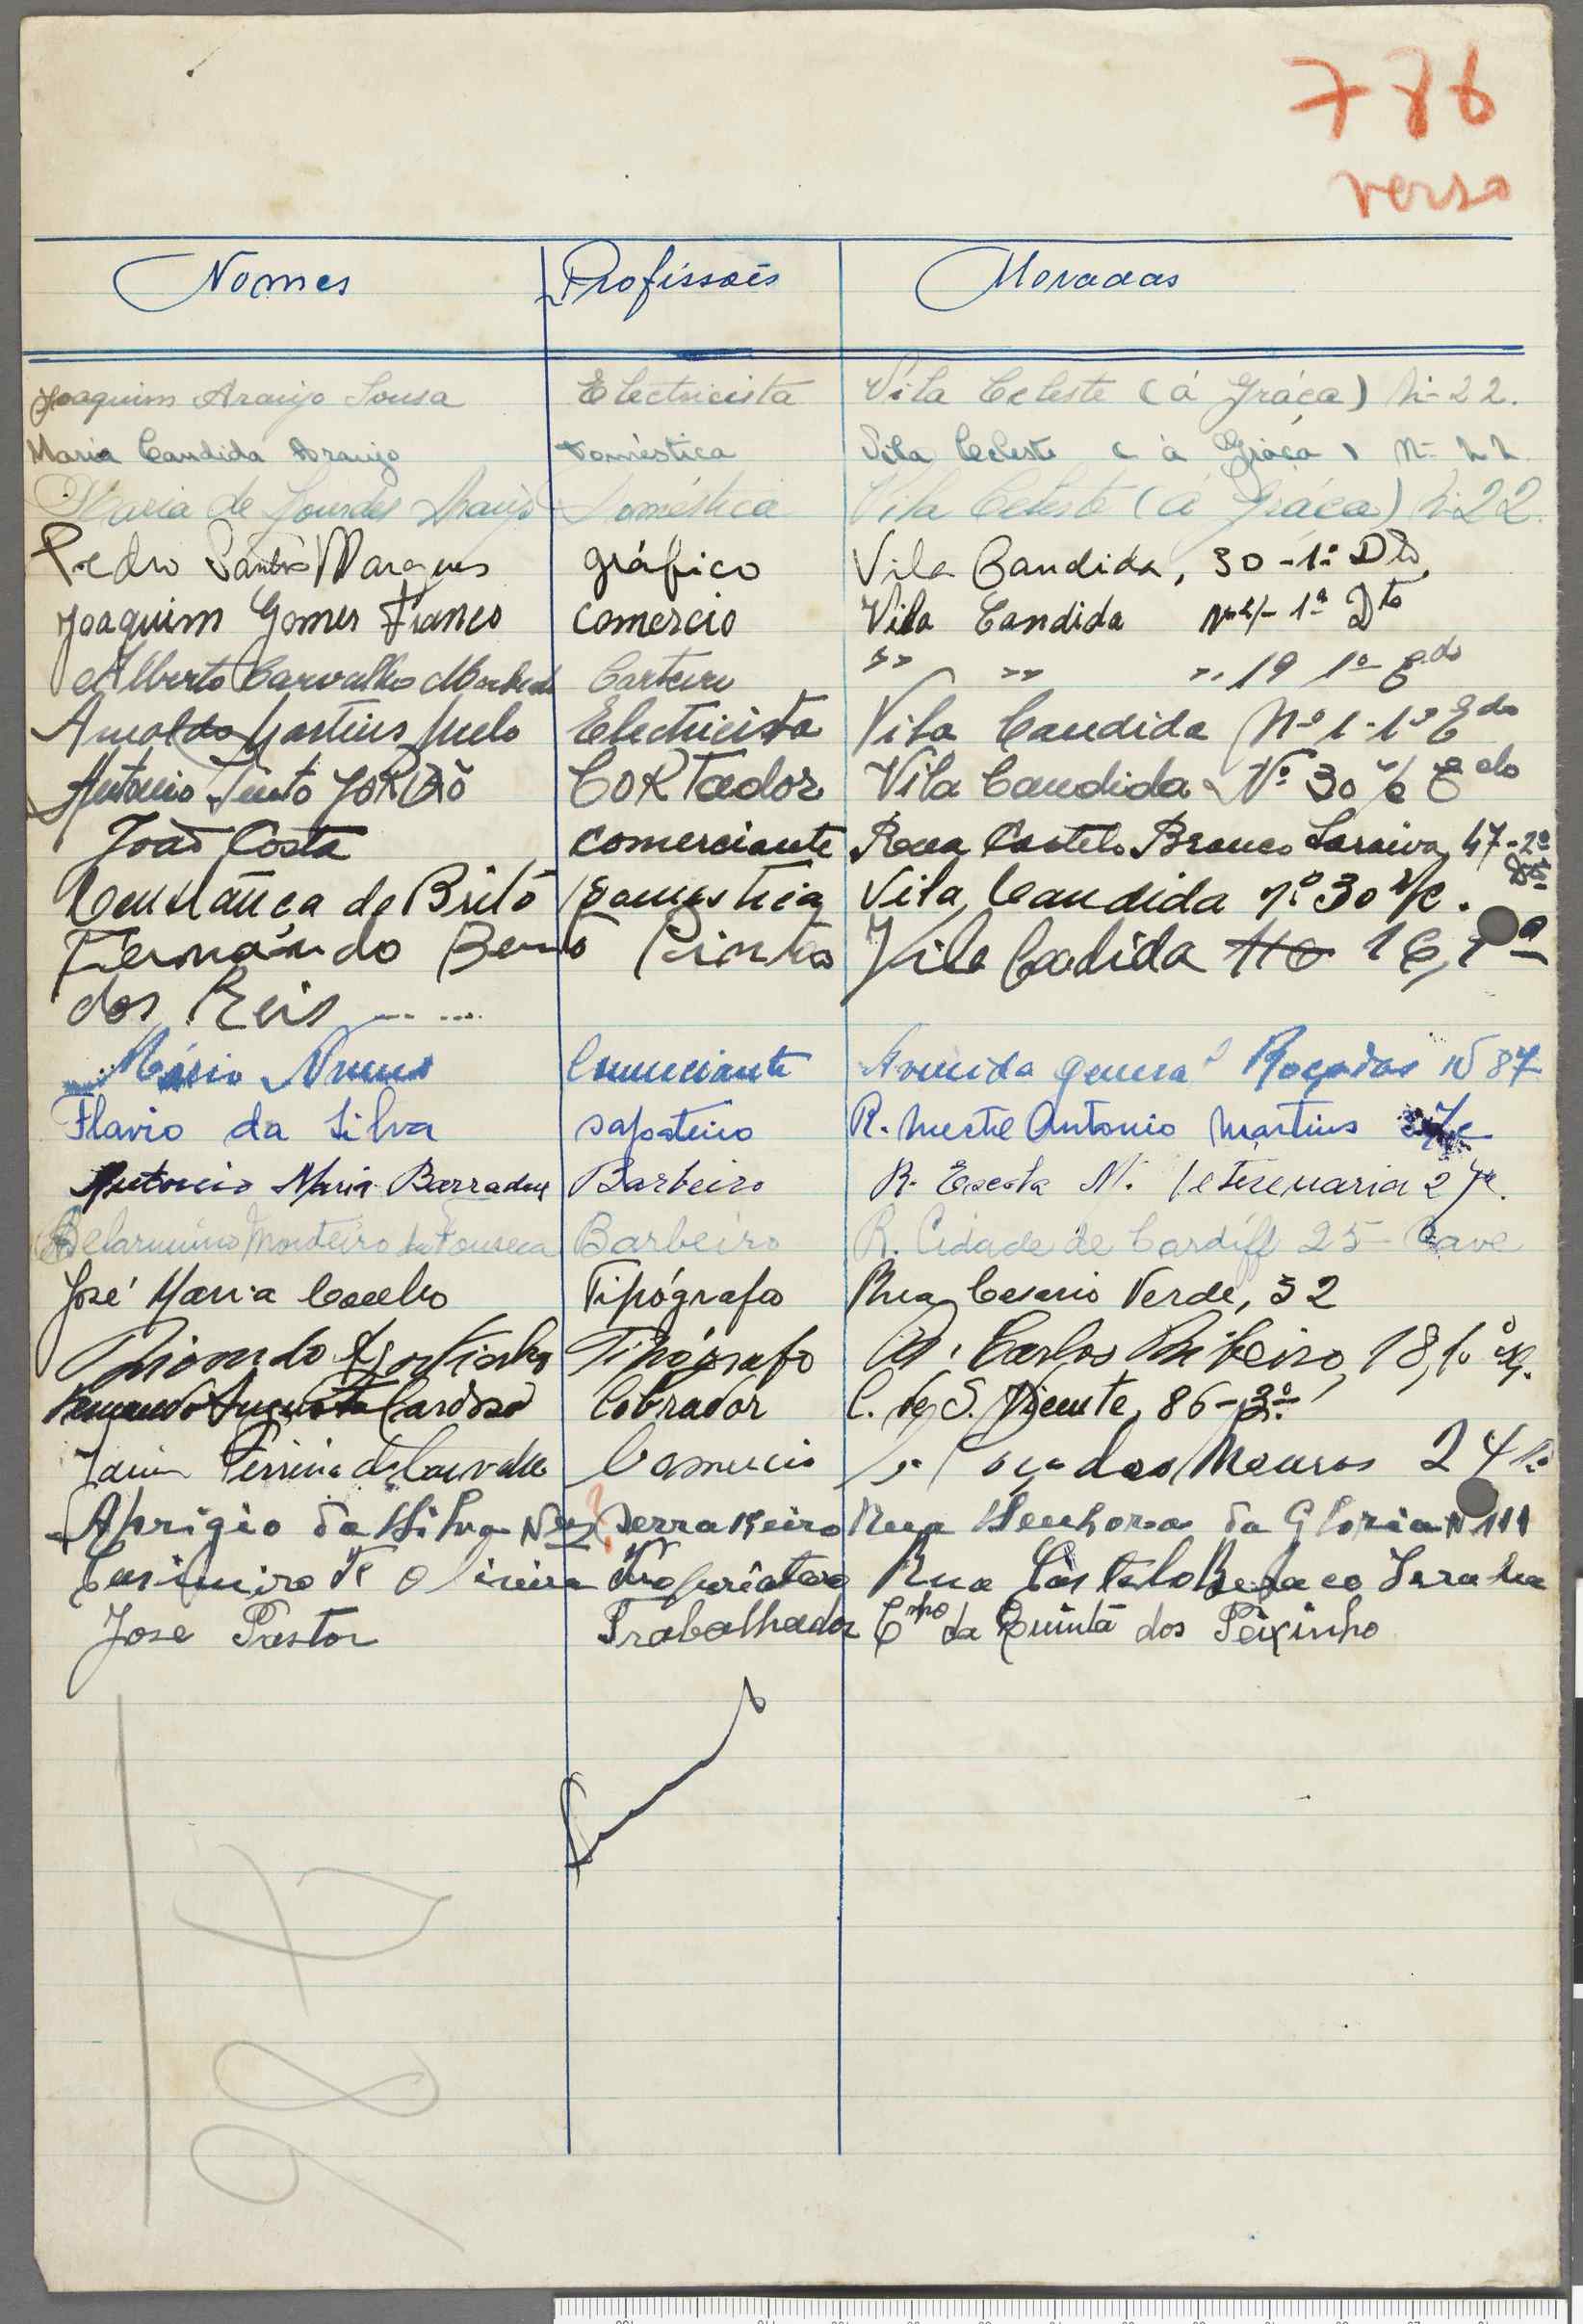 786
verso
Nomes Profissoēs Moradas
Joaquim Araujo Sousa Electricista Vila Celeste (á Gráça) Nº 22.
Maria Candida Araujo Doméstica Vila Celeste (á Gráça) Nº 22
Maria de Lourdes Araujo Doméstica Vila Celeste (á Gráça) Nº 22.
Pedro Santos Marques gráfico Vila Candida, 30-1º Dto,
Joaquim Gomes Franco Comercio Vila Candida 1º Dto
Alberto Carvalho Machado Carteiro " " " 19 1º Edo
Arnaldo Martins Melo Electricista Vila Candida Nº 1-1º Edo
Antonio Pinto Cortador Vila Candida Nº 30 r/c Edo
João Costa comerciante Rua Castelo Branco Saraiva, 47-2º
Dto
Constânça de Brito Domestica Vila Candida nº 30 r/c.
Fernando Bento Pintor Vila Cadida 16, 1º
dos Reis .....
Mário Nunes Comerciante Avenida General Roçadas Nº 87
Flavio da Silva sapateiro R. Mestre Antonio Martins
Antonio Maria Barradas Barbeiro R. Escola M. Veterenaria 2 r/c.
Belarmino Monteiro da Fonseca Barbeiro R. Cidade de Cardiff 25- Cave
José Maria Coelho Tipógrafo Rua Cesario Verde, 32
Agostinho Tipógrafo R. Carlos Ribeiro, 18, 1º
Fernando Augusto Cardoso Cobrador C. de S. Vicente, 86-3º
Ferreira de Carvalho Comercio dos Mouros 24
Aprigio da Silva Serralheiro Rua Senhora da Gloria Nº 111
Casimiro de Oliveira Proprietario Rua Castelo Branco Saraiva
Jose Pastor Trabalhador Cnho da Quinta dos Peixinho